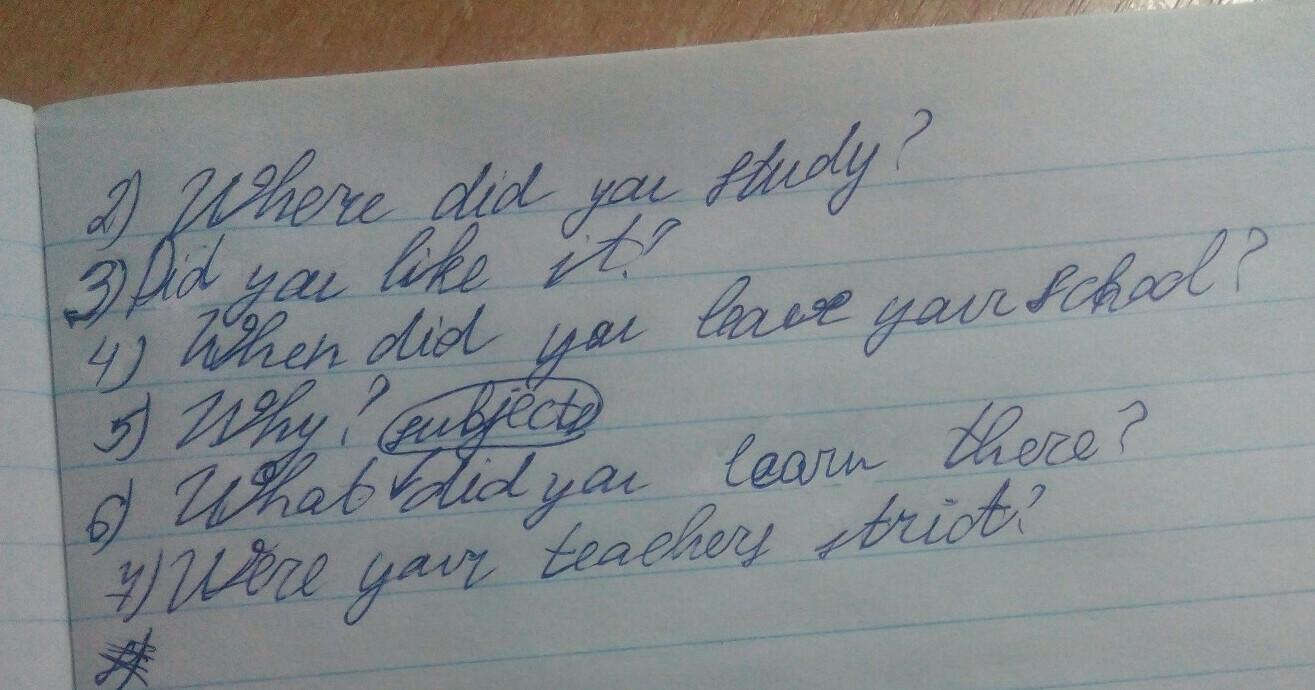 2) Where did you study?
3) Did you like it?
4) When did you leave your school?
5) Why? subjects
6) What did you learn there?
7) Were your teachers strict?